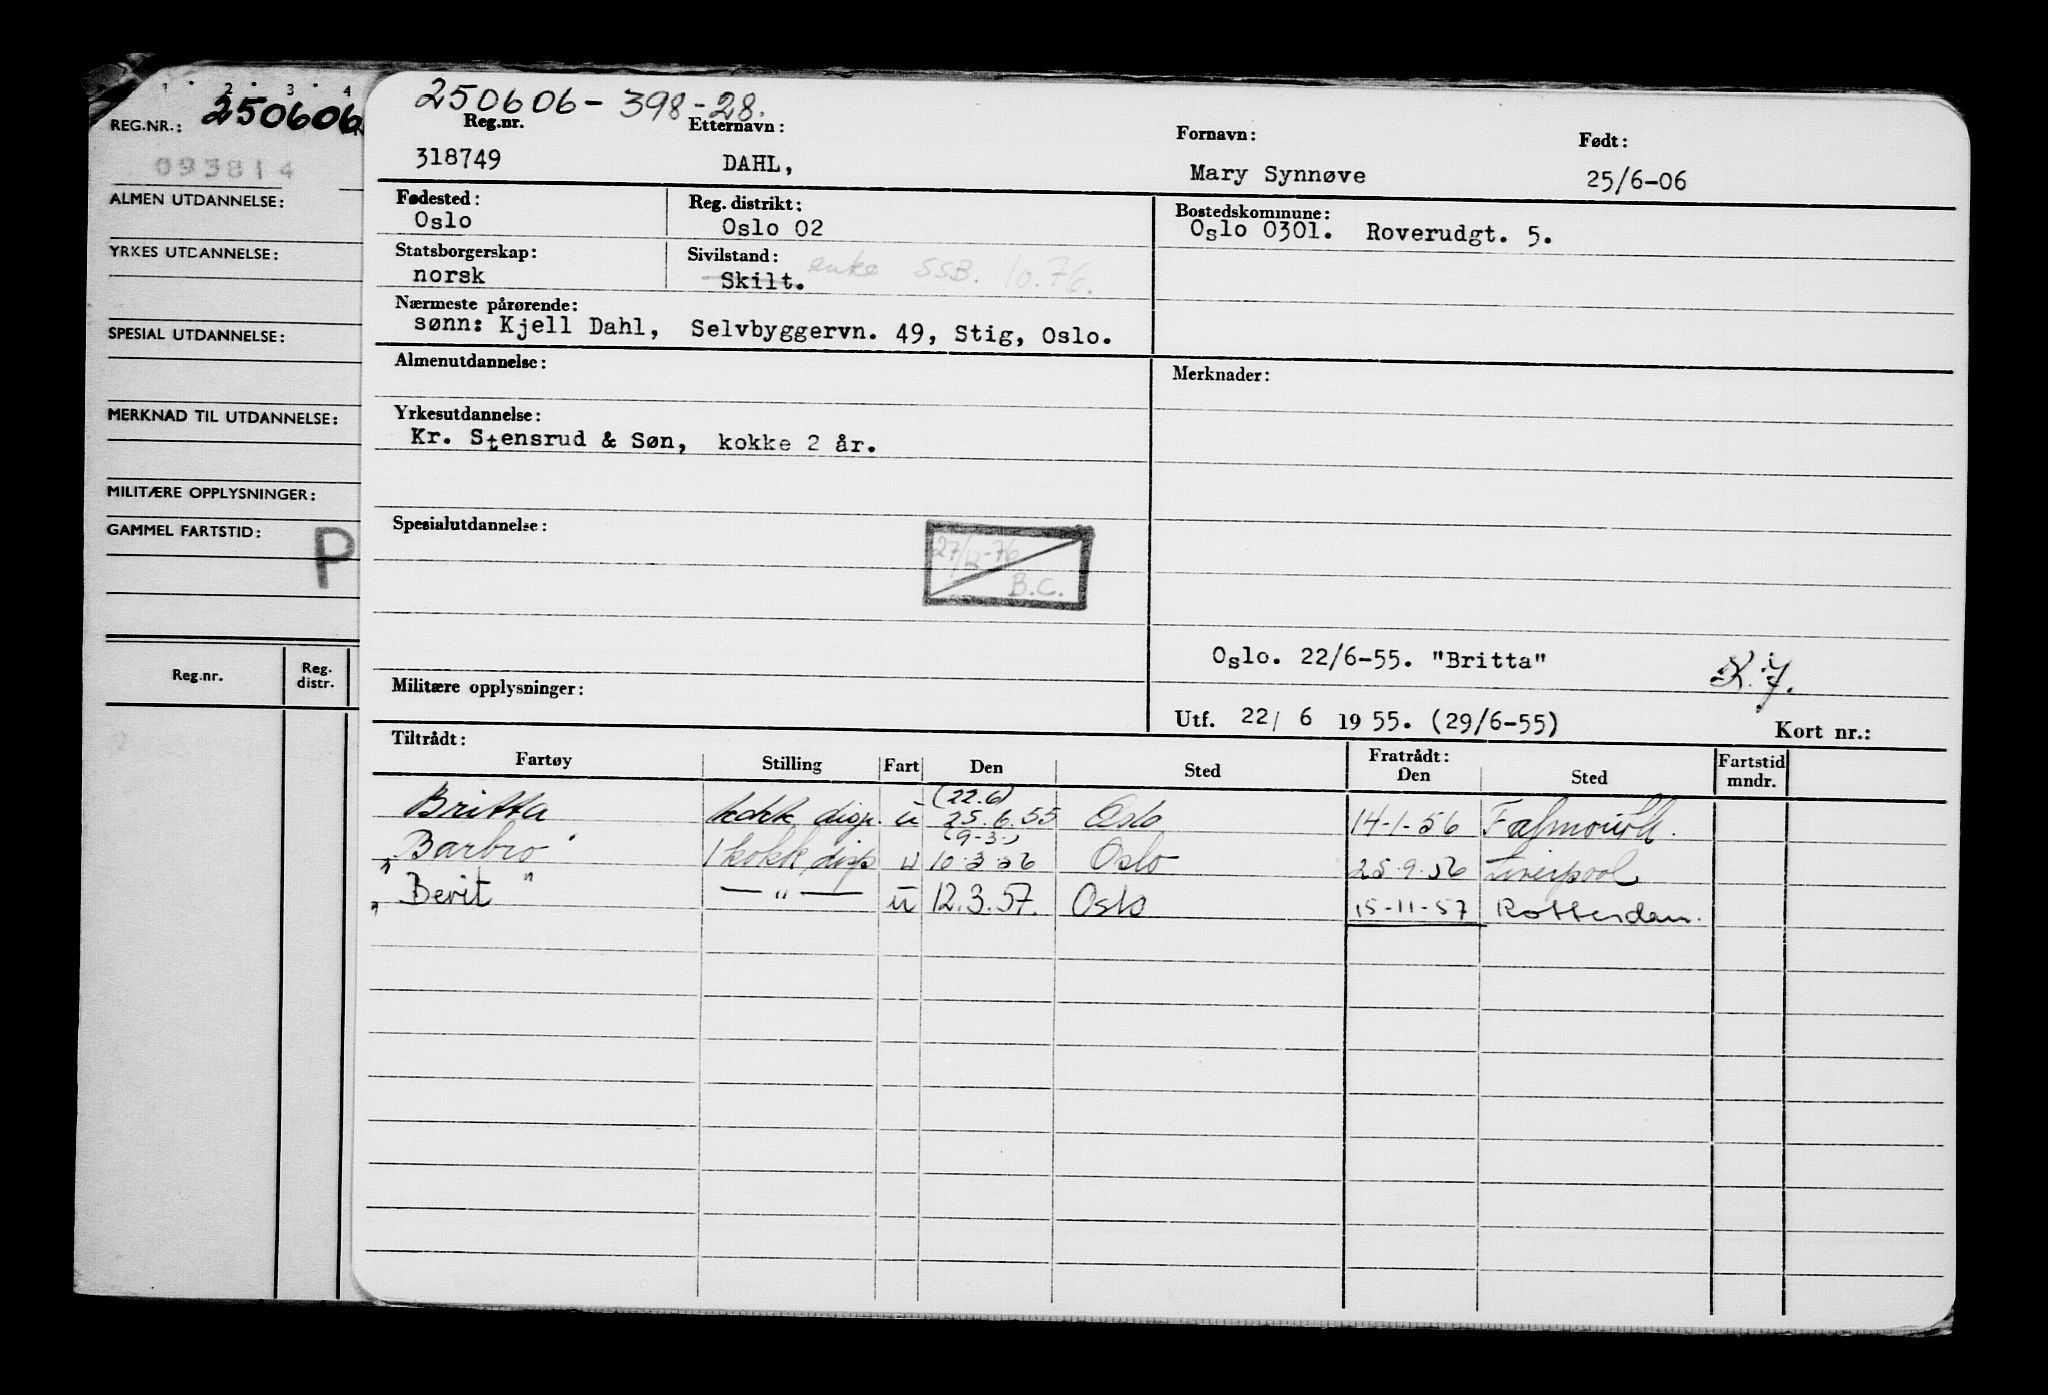 1 · 2 · 3 · 4
REG.NR.: 250606
093814
ALMEN UTDANNELSE:
YRKES UTDANNELSE:
SPESIAL UTDANNELSE:
MERKNAD TIL UTDANNELSE:
MILITÆRE OPPLYSNINGER:
GAMMEL FARTSTID: P
Reg.nr. Reg. distr.
250606-398-28.
Reg.nr. Etternavn: Fornavn: Født:
318749 DAHL, Mary Synnøve 25/6-06
Fødested: Reg. distrikt: Bostedskommune:
Oslo Oslo 02 Oslo 0301. Roverudgt. 5.
Statsborgerskap: Sivilstand: enke SSB. 10.76.
norsk Skilt.
Nærmeste pårørende:
sønn: Kjell Dahl, Selvbyggervn. 49, Stig, Oslo.
Almenutdannelse: Merknader:
Yrkesutdannelse:
Kr. Stensrud & Søn, kokke 2 år.
Spesialutdannelse:
27/12-76
B.C.
Oslo. 22/6-55. "Britta" K.J.
Militære opplysninger:
Utf. 22/ 6 19 55. (29/6-55) Kort nr.:
Tiltrådt: Fratrådt:
Fartøy Stilling Fart Den Sted Den Sted Fartstid mndr.
(22.6)
Britta kokk disp. u 25.6.55 Oslo 14-1-56 Falmouth.
(9-3-)
" Barbro " 1 kokk disp u 10.3.56 Oslo 25.9.56 Liverpool
" Berit " — " — u 12.3.57. Oslo 15-11-57 Rotterdam.